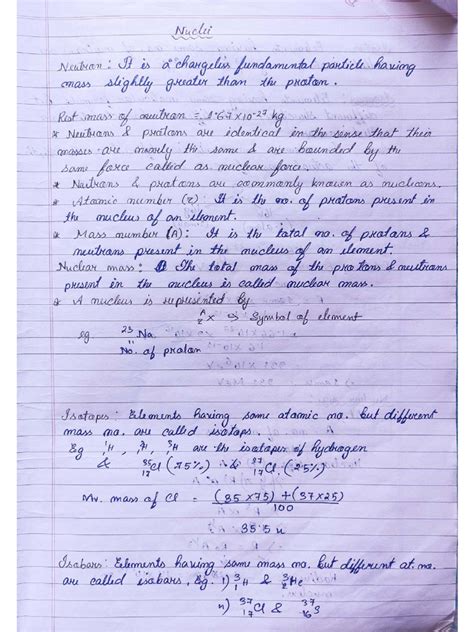 Nuclei
Neutron : It is a chargeless fundamental particle having
mass slightly greater than the proton.
Rest mass of neutron = 1.67 x 10⁻²⁷ kg
* Neutrons & protons are identical in the sense that their
masses are nearly the same & are bounded by the
same force called as nuclear force.
* Neutrons & protons are commonly known as nucleons.
* Atomic number (z) : It is the no. of protons present in
the nucleus of an element.
* Mass number (A) : It is the total no. of protons &
neutrons present in the nucleus of an element.
Nuclear mass : The total mass of the protons & neutrons
present in the nucleus is called nuclear mass.
* A nucleus is represented by
ᴬ_Z X ⇒ Symbol of element
eg ²³₁₁Na
No. of proton
Isotopes : Elements having same atomic no. but different
mass no. are called isotops.
Eg ¹₁H , ²₁H , ³₁H are the isotopes of hydrogen
& ³⁵₁₇Cl (75%) & ³⁷₁₇Cl (25%)
Mv. mass of Cl = (35 x 75) + (37 x 25)
100
35.5 u
Isobars : Elements having same mass no. but different at. no.
are called isobars, Eg. 1) ³₁H & ³₂He
ii) ³⁷₁₇Cl & ³⁷₁₆S